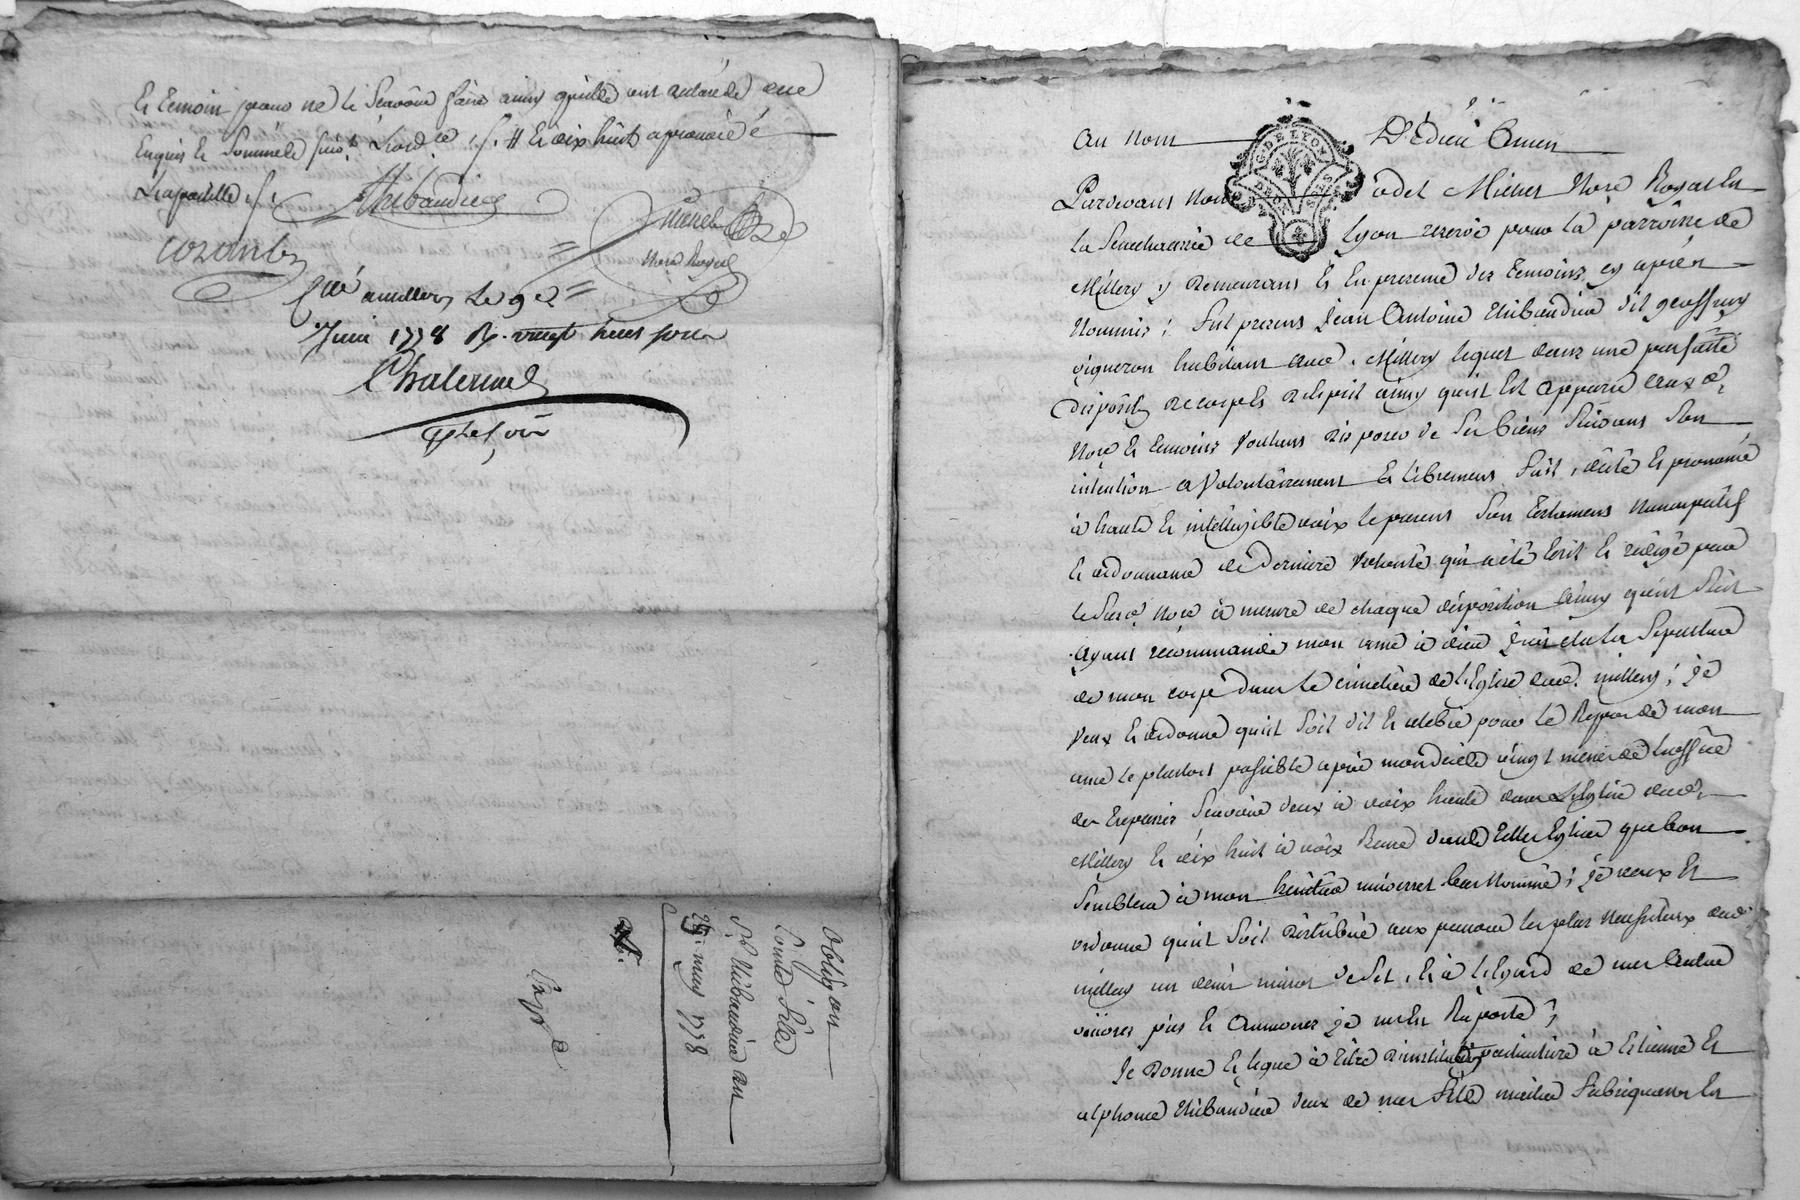 Et temoin pour ne le scavoir faire ainsy quilles ont declaré de ce
Enquis et sommés suiv.t L'ord.ce ./. # et dix huit aprouvé é
La paraelle ./. Thibaudier
Michel
corantin
No.re Royal
C.llé a millery Le 9.e
Juin 1778 R. vingt huit sous
Chatelus
G.DE LYON
DEUX SOLS
au nom De dieu Amen
Pardevant Nous odet Michel No.re Royal En
la Senechaussée de Lyon reservé pour la parroisse de
Millery y demeurant Et En presence des temoins cy après
Nommés ; fut present Jean Antoine Thibaudier dit geoffray
vigneron habitant aud. Millery lequel dans une parfaitte
disposition de corps et desprit ainsy quil Est apparu aux d.
No.re Et temoins voulant disposer de ses biens suivant son
intention a volontairement Et librement fait, dicté Et prononcé
à haute Et intelligible voix le present son testament Nuncupatif
Et ordonnance de derniere volonté qui a été Ecrit Et redigé par
led. No.re à mesure de chaque disposition ainsy quil suit
ayant recommandé mon ame à dieu j'ai élu la Sepulture
de mon corps dans le cimetière de L'Eglise dud. millery ; je
veux Et ordonne quil soit dit Et celebré pour le Repos de mon
ame le plutost possible après mon decès vingt messes de l'office
des trepassés scavoir deux à voix haute dans L'Eglise dud.
Millery Et dix huit à voix Basse dans telle Eglise que bon
semblera à mon héritier universel bas Nommé ; je veux Et
ordonne quil soit distribué aux pauvres les plus Necessiteux dud.
millery un demi minot de sel, Et à L'Egard de mes autres
œuvres pies Et Aumones je men Raporte ;
Je Donne Et legue à titre d'institution particuliere à Estienne Et
alphonse Thibaudier deux de mes fils maitres fabriquants En
Oblig.on
Comte fils
S.r thibaudier an
29. may 1778
Expé